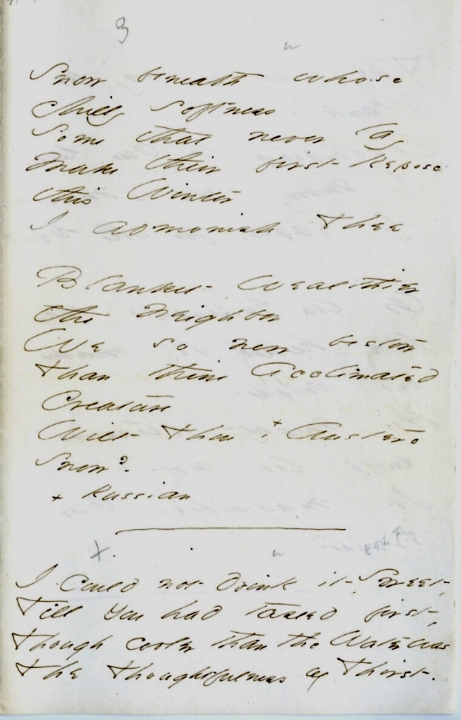 3
Snow beneath whose
chilly softness
Some that never lay
Make their first Repose
this Winter
I admonish Thee

Blanket Wealthier
the Neighbor
We so new bestow
Than thine Acclimated
Creature
Wilt Thou, + Austere
Snow?
+ Russian

+
I could not drink it, Sweet,
Till You had tasted first,
Though cooler than the Water was
The Thoughtfulness of Thirst.